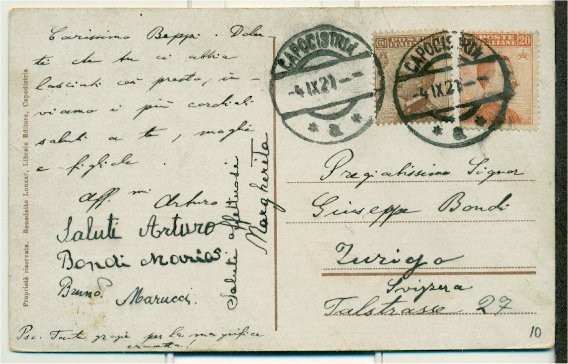 Carissimo Beppi. Dolen
ti che tu ci abbia
lasciati così presto, in-
viamo i più cordiali
saluti a te, moglie
e figliole.
Aff. mi Arturo
Saluti Arturo
Bondi Marias
Bruno.
Marucci.
Saluti affettuosi
Margherita
Psc. Tante grazie per la magnifica
Proprietà riservata. Benedetto Lonzar, Libraio Editore, Capodistria
CAPODISTRIA
-4 IX 21--
* a *
CAPODISTRIA
-4 IX 21--
* a *
POSTE ITALIANE 20
Pregiatissimo Signor
Giuseppe Bondi
Zurigo
Svizzera
Talstrasse 27
10